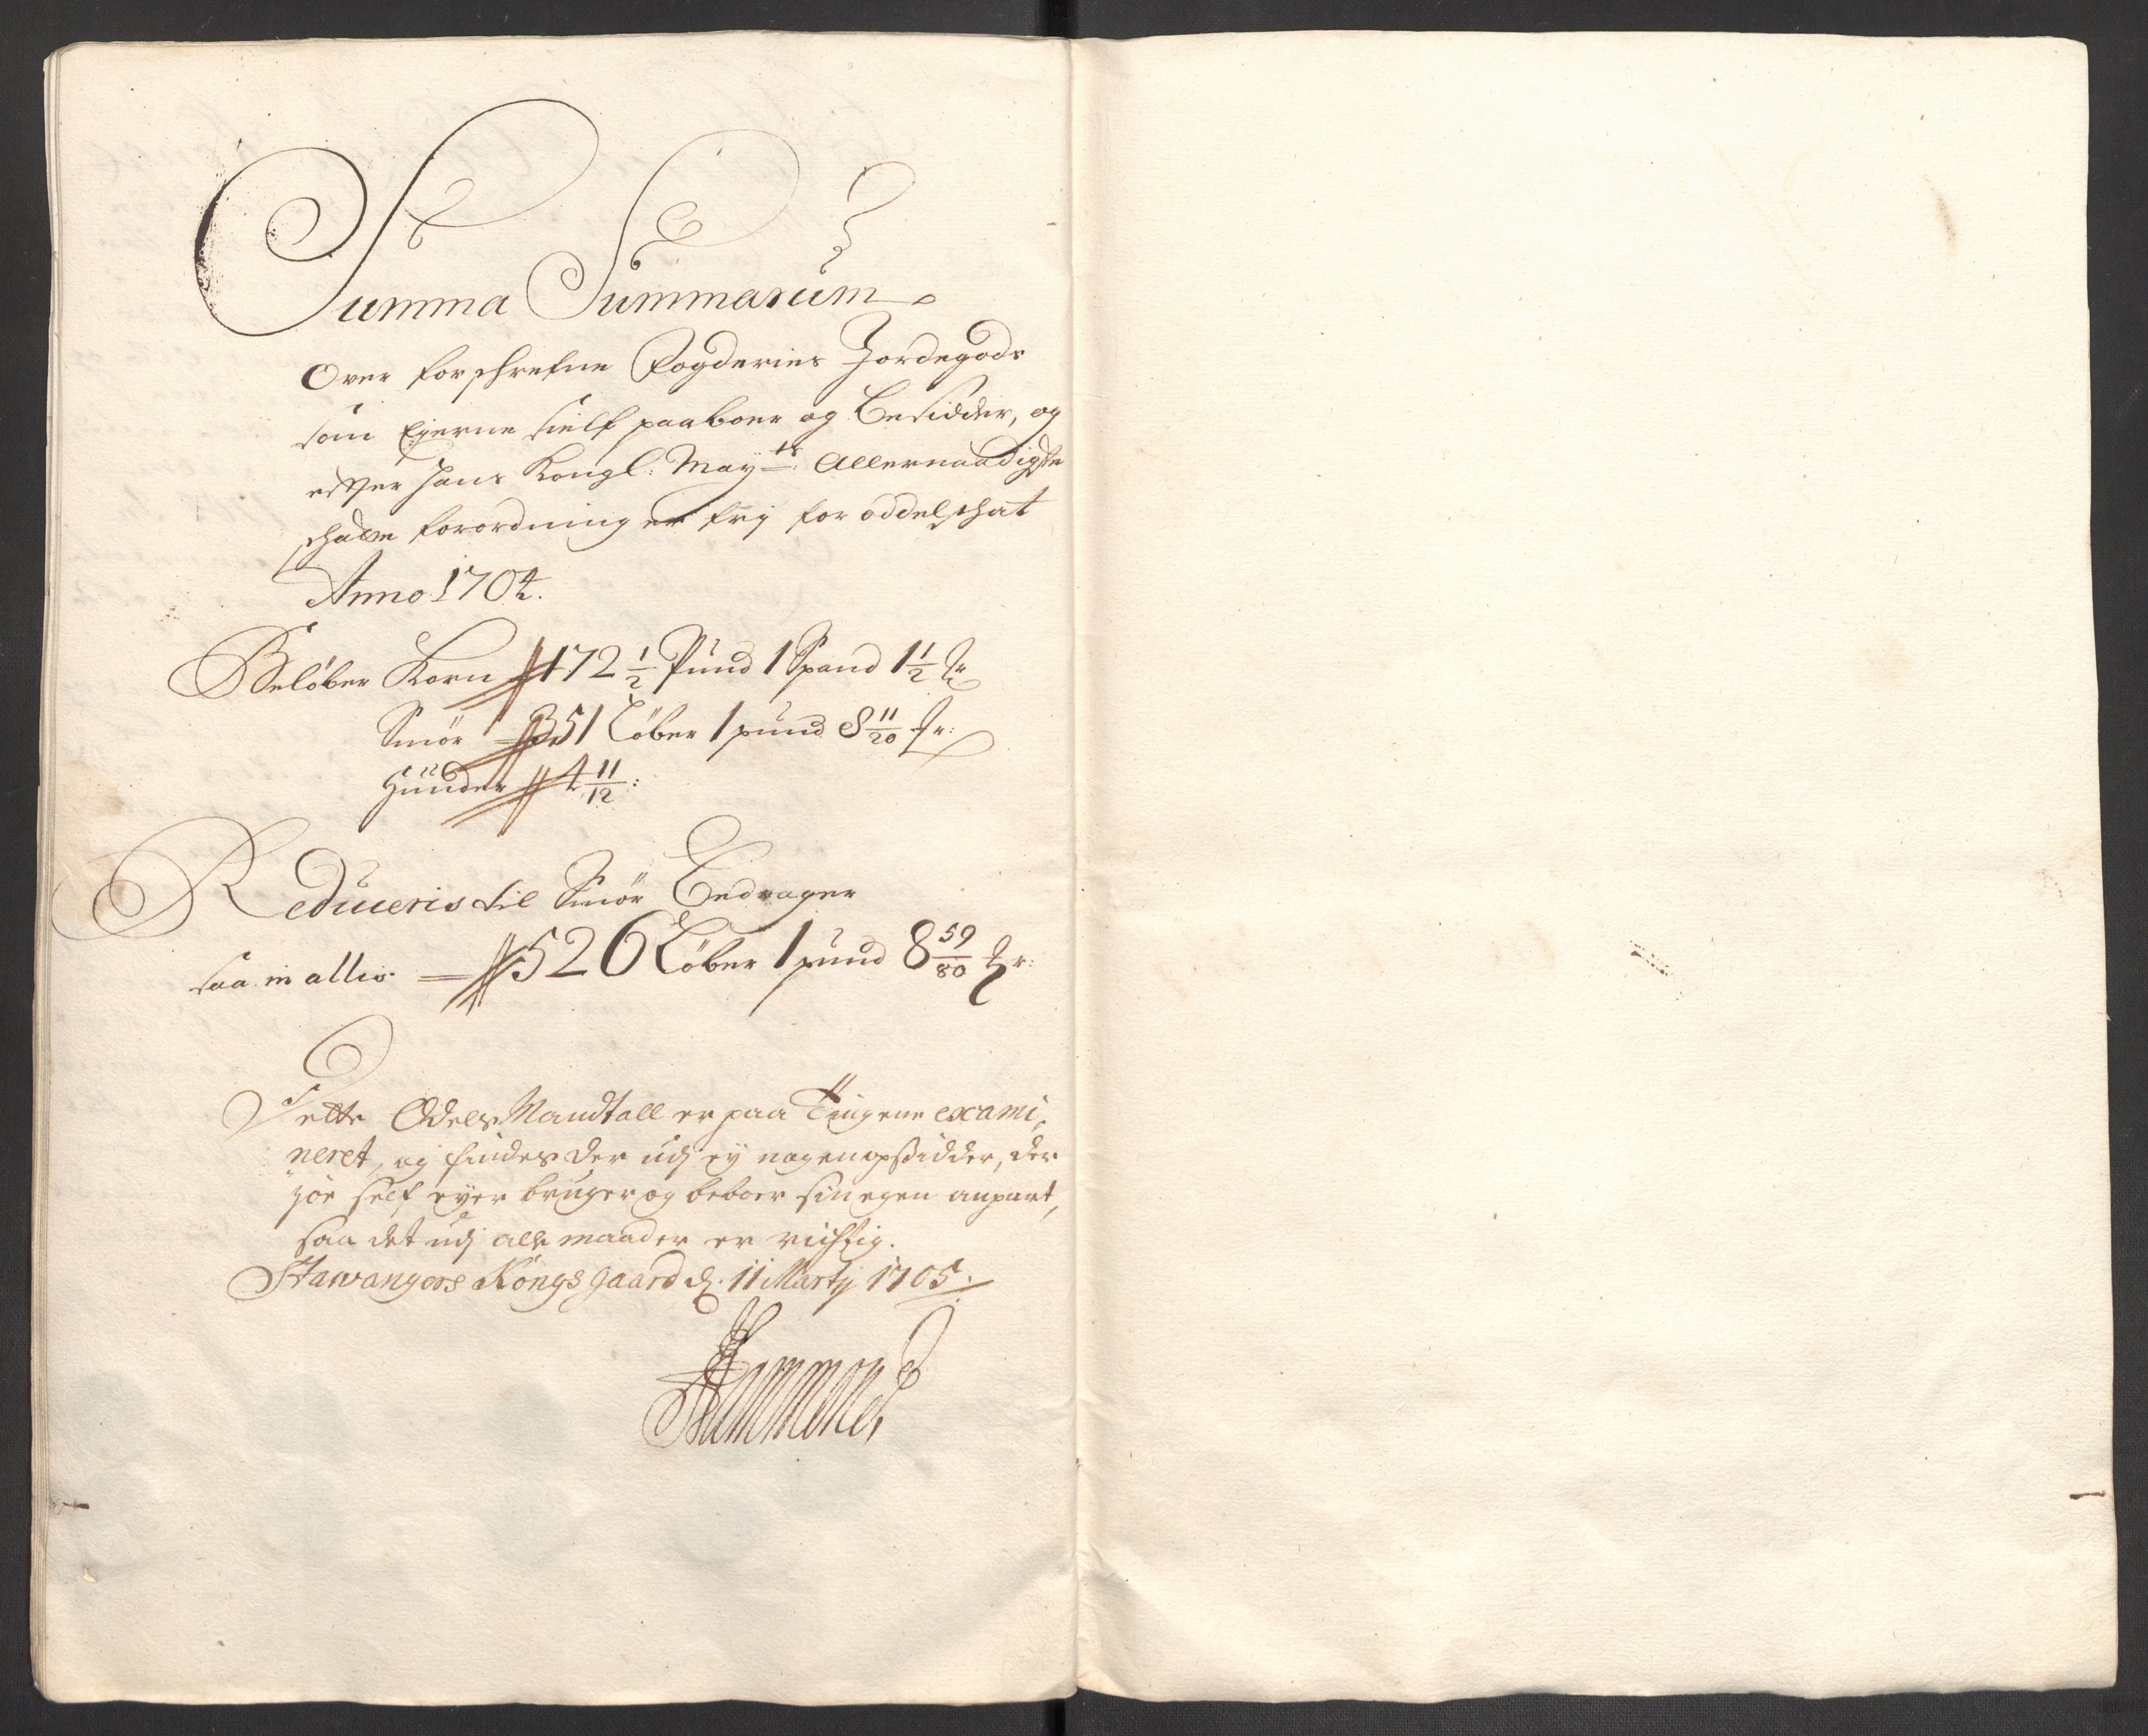 Summa Summarum
Over forschrefne Fogderies Jordegods
som Eÿerne sielf paaboer og besidder, og
efter Hans Kongl: Maÿts: Allernaadigste
schatte forordning er frÿ for oddelschat
Anno 1704.
Beløber Korn 172 1/2 Pund 1 Spand 1 1/2 Fr
Smør 351 Løber 1 pund 8 11/20 fr:
Huuder 4 11/12:
Reduceris til Smør bedrager
saa in alles = 526 Løber 1 pund 8 59/80 fr:
Dette Odels Mandtall er paa Tingene exami,
neret, og findes der udj eÿ nogen opsidder, der
jo self eÿer bruger og beboer sin egen anpart,
saa det udj alle maader er richtig.
Stawangers Kongsgaard d. 11 Martij 1705.
Hammond